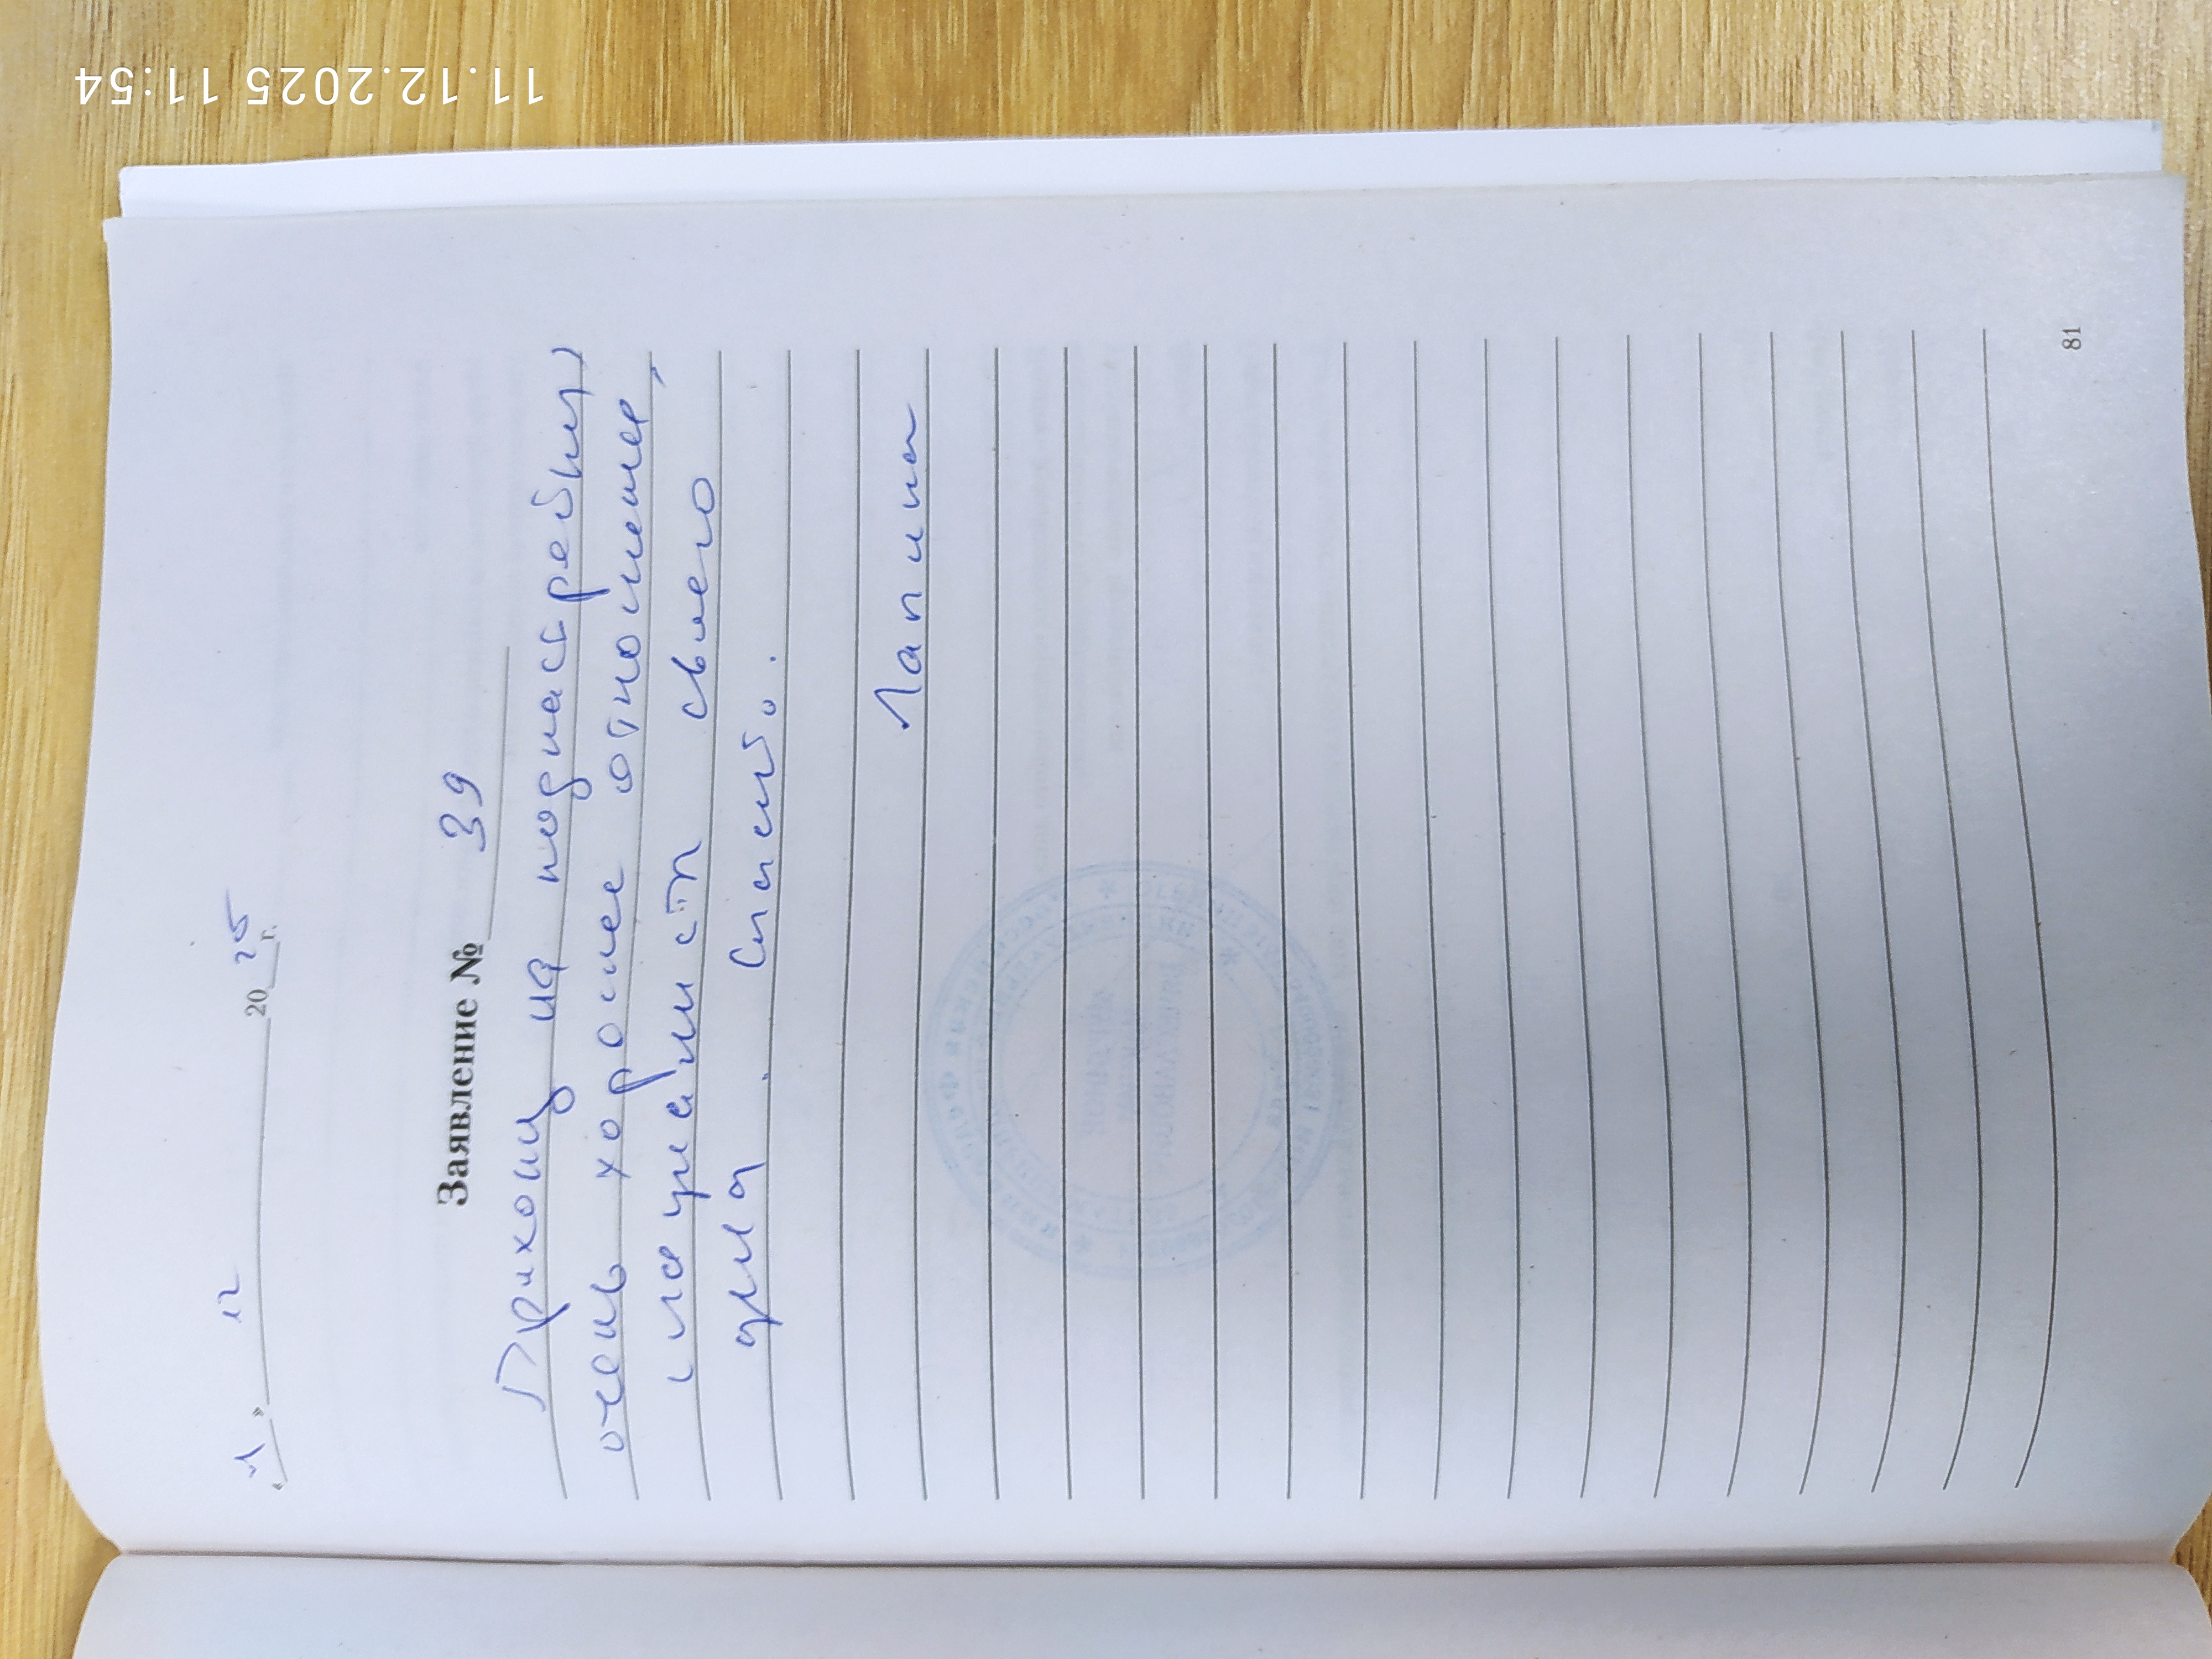 11.12.2025 11:54
« 11 » 12 20 25 г.
Заявление № 39
Прихожу на подна
очень хорошее отношение,
специалист своего
дела. Спасибо.
Лапина
81